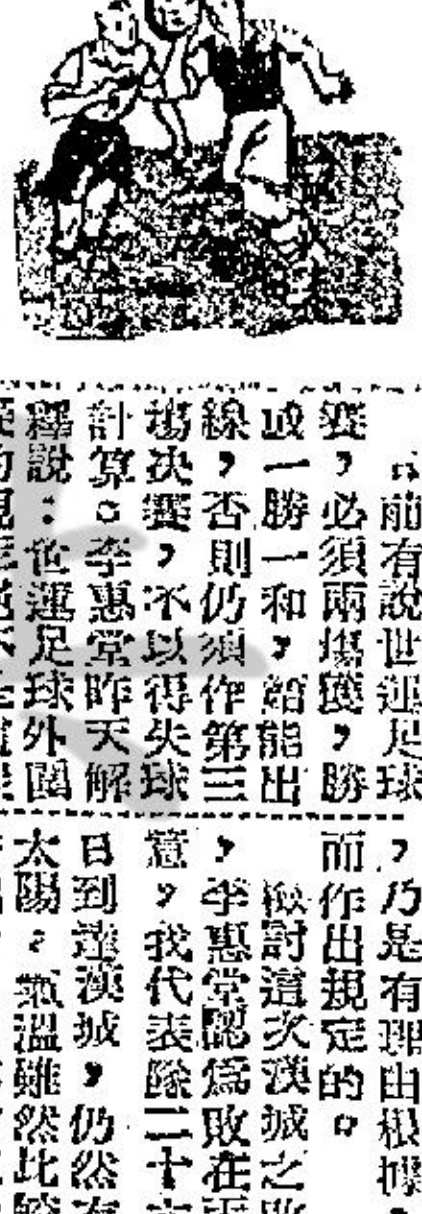 日前有說世運足球
賽，必須兩場獲勝，勝
或一勝一和，始能出
線，否則仍須作第三
場決賽，不以得失球
計算。李惠堂昨天解
釋說：世運足球外圍
，乃是有理由根據，
而作出規定的。
檢討這次漢城之敗
，李惠堂認為敗在
意，我代表隊二十
日到達漢城，仍然有
太陽，氣溫雖然比